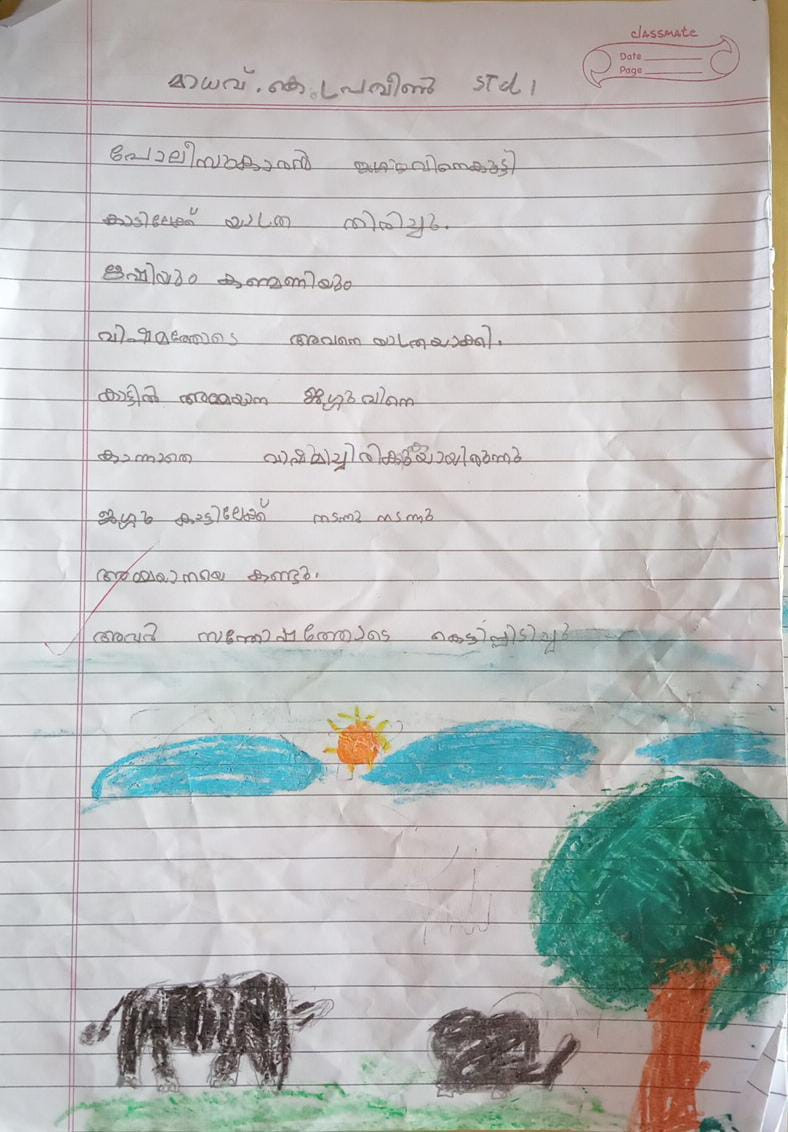 classmate
Date
Page
മാധവ്. കെ. പ്രവീൺ Std 1
പോലീസുകാരൻ ജഗ്ഗുവിനെകൂട്ടി
കാട്ടിലേക്ക് യാത്ര തിരിച്ചു.
ജൂഹിയും കണ്മണിയും
വിഷമത്തോടെ അവനെ യാത്രയാക്കി.
കാട്ടിൽ അമ്മയാന ജഗ്ഗുവിനെ
കാണാതെ വിഷമിച്ചിരിക്കുയായിരുന്നു
ജഗ്ഗു കാട്ടിലേക്ക് നടന്നു നടന്നു
അമ്മയാനയെ കണ്ടു.
അവർ സന്തോഷത്തോടെ കെട്ടിപ്പിടിച്ചു